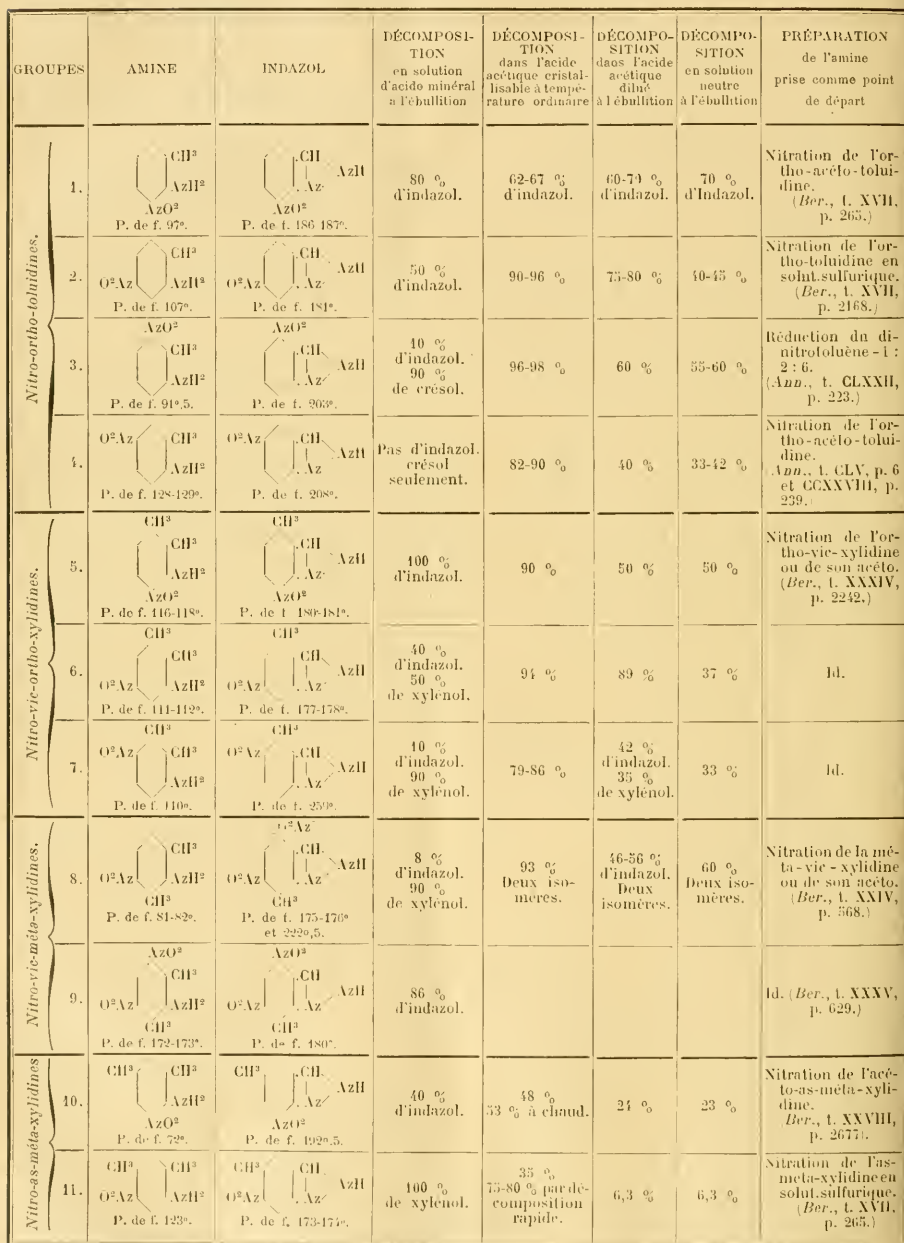 GROUPES
AMINE
INDAZOL
DÉCOMPOSI-
TION
en solution
d'acide minéral
à l'ébullition
DÉCOMPOSI-
TION
dans l'acide
acétique cristal-
lisable à tempé-
rature ordinaire
DÉCOMPO-
SITION
dans l'acide
acétique
dilué
à l'ébullition
DÉCOMPO-
SITION
en solution
neutre
à l'ébullition
PRÉPARATION
de l'amine
prise comme point
de départ
Nitro-ortho-toluidines.
1.
CH³
AzH²
AzO²
P. de f. 97°.
CH
AzH
Az
AzO²
P. de f. 186-187°.
80 %
d'indazol.
62-67 %
d'indazol.
60-70 %
d'indazol.
70 %
d'Indazol.
Nitration de l'or-
tho-acéto-tolui-
dine.
(Ber., t. XVII,
p. 265.)
2.
CH³
O²Az AzH²
P. de f. 107°.
CH
AzH
O²Az Az
P. de f. 181°.
50 %
d'indazol.
90-96 %
75-80 %
40-45 %
Nitration de l'or-
tho-toluidine en
solut. sulfurique.
(Ber., t. XVII,
p. 2168.)
3.
AzO²
CH³
AzH²
P. de f. 91°,5.
AzO²
CH
AzH
Az
P. de f. 203°.
10 %
d'indazol.
90 %
de crésol.
96-98 %
60 %
55-60 %
Réduction du di-
nitrotoluène-1 :
2 : 6.
(Ann., t. CLXXII,
p. 223.)
4.
O²Az CH³
AzH²
P. de f. 128-129°.
O²Az CH
AzH
Az
P. de f. 208°.
Pas d'indazol.
crésol
seulement.
82-90 %
40 %
33-42 %
Nitration de l'or-
tho-acéto-tolui-
dine.
(Ann., t. CLV, p. 6
et CCXXVIII, p.
239.)
Nitro-vic-ortho-xylidines.
5.
CH³
CH³
AzH²
AzO²
P. de f. 116-118°.
CH³
CH
AzH
Az
AzO²
P. de f. 180-181°.
100 %
d'indazol.
90 %
50 %
50 %
Nitration de l'or-
tho-vic-xylidine
ou de son acéto.
(Ber., t. XXXIV,
p. 2242.)
6.
CH³
CH³
O²Az AzH²
P. de f. 111-112°.
CH³
CH
AzH
O²Az Az
P. de f. 177-178°.
40 %
d'indazol.
50 %
de xylénol.
94 %
89 %
37 %
Id.
7.
CH³
O²Az CH³
AzH²
P. de f. 110°.
CH³
O²Az CH
AzH
Az
P. de f. 259°.
10 %
d'indazol.
90 %
de xylénol.
79-86 %
42 %
d'indazol.
35 %
de xylénol.
33 %
Id.
Nitro-vic-méta-xylidines.
8.
CH³
O²Az AzH²
CH³
P. de f. 81-82°.
O²Az
CH
AzH
O²Az Az
CH³
P. de f. 175-176°
et 222°,5.
8 %
d'indazol.
90 %
de xylénol.
93 %
Deux iso-
mères.
46-56 %
d'indazol.
Deux
isomères.
60 %
Deux iso-
mères.
Nitration de la mé-
ta-vic-xylidine
ou de son acéto.
(Ber., t. XXIV,
p. 568.)
9.
AzO²
CH³
O²Az AzH²
CH³
P. de f. 172-173°.
AzO²
CH
AzH
O²Az Az
CH³
P. de f. 180°.
86 %
d'indazol.
Id. (Ber., t. XXXV,
p. 629.)
Nitro-as-méta-xylidines
10.
CH³ CH³
AzH²
AzO²
P. de f. 72°.
CH³ CH
AzH
Az
AzO²
P. de f. 192°,5.
40 %
d'indazol.
48 %
53 % à chaud.
24 %
23 %
Nitration de l'acé-
to-as-méta-xyli-
dine.
Ber., t. XXVIII,
p. 2677).
11.
CH³ CH³
O²Az AzH²
P. de f. 123°.
CH³ CH
AzH
O²Az Az
P. de f. 173-174°.
100 %
de xylénol.
35 %
75-80 % par dé-
composition
rapide.
6,3 %
6,3 %
Nitration de l'as-
meta-xylidine en
solut. sulfurique.
(Ber., t. XVII,
p. 265.)